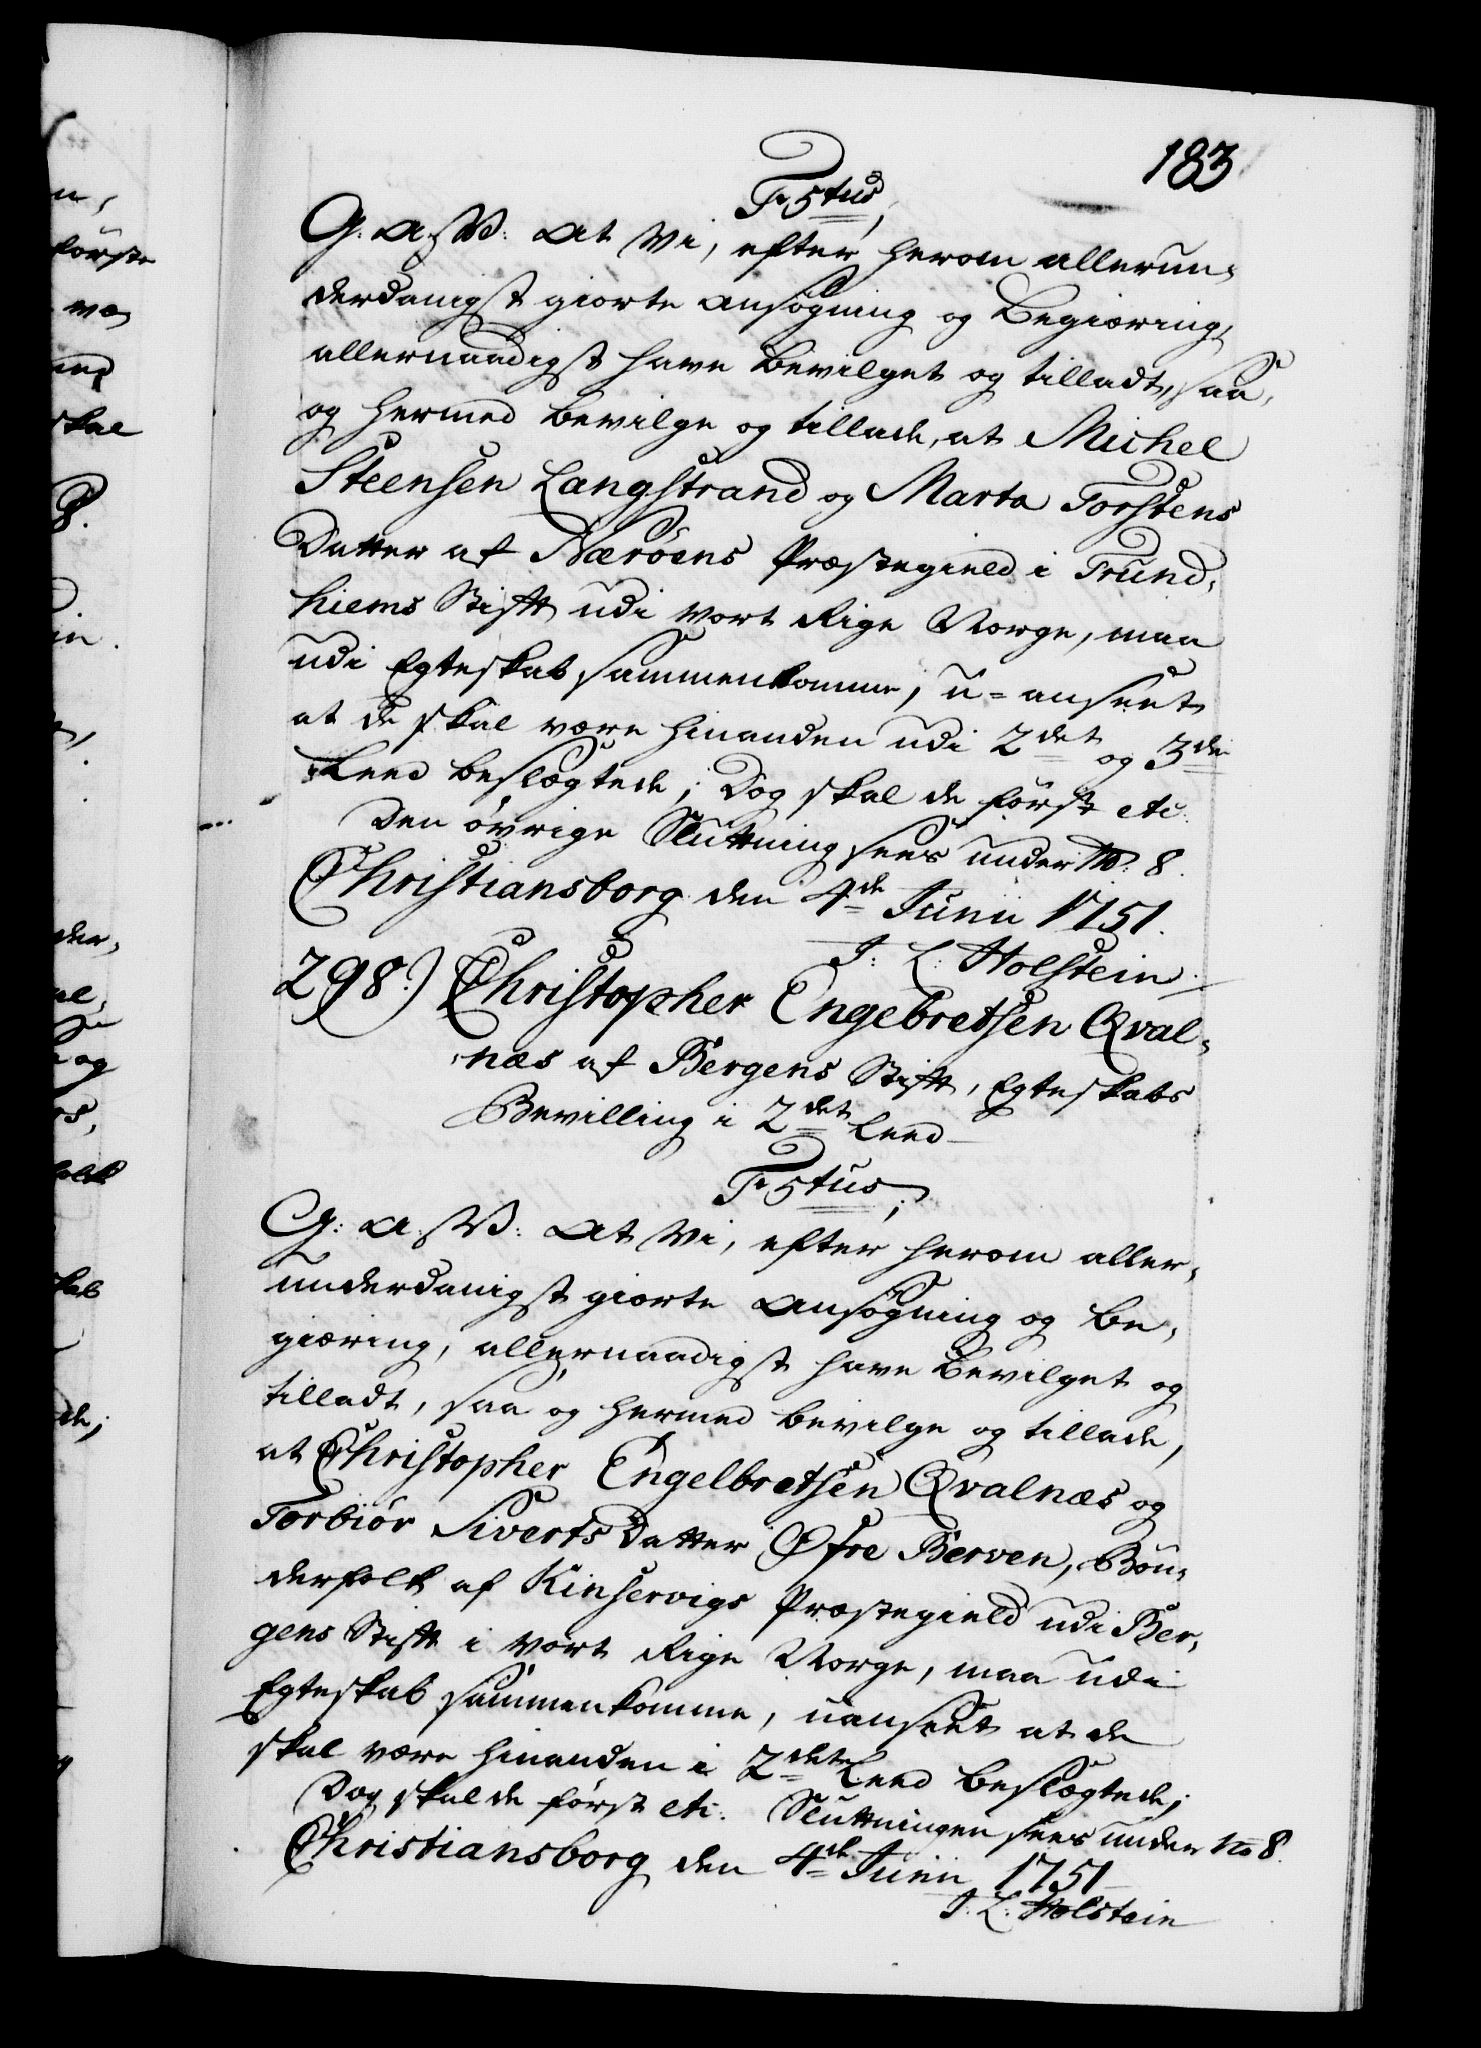 183
Fr. 5tus,
G. A. W: At Vi, efter herom allerun-
derdanigst giorte Ansøgning og Begiæring,
allernaadigst have bevilget og tilladt, saa,
og hermed bevilge og tillade, at Michel
Steensen Langstrand og Marta Torstens
Datter af Nærøens Præstegield i Trund-
hiems Stift udi vort Rige Norge, maa
udi Egteskab sammenkomme, u-anseet
at de skal være hinanden udi 2det og 3die
Leed beslægtede; Dog skal de først etc.
Den øvrige Slutning sees under No: 8.
Christiansborg den 4de Junii 1751.
J: L: Holstein.
298.) Christopher Engebretsen Qval-
næs af Bergens Stift, Egteskabs
Bevilling i 2det Leed
Fr. 5tus,
G: A. W: At Vi, efter herom aller-
underdanigst giorte Ansøgning og Be-
giæring, allernaadigst have bevilget og
tilladt, saa og hermed bevilge og tillade,
at Christopher Engelbretsen Qvalnæs og
Torbiør Siverts Datter Øfre Berven, Bøn-
derfolk af Kinservigs Præstegield udi Ber-
gens Stift i vort Rige Norge, maa udi
Egteskab sammenkomme, uanseet at de
skal være hinanden i 2det Leed beslægtede;
Dog skal de først etc: Slutningen sees under No 8.
Christiansborg den 4de Junii 1751
J: L: Holstein